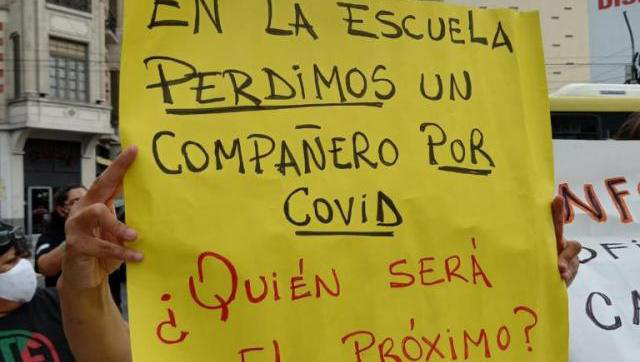 EN LA ESCUELA
PERDIMOS UN
COMPAÑERO POR
COVID
¿QUIÉN SERÁ
EL PRÓXIMO?